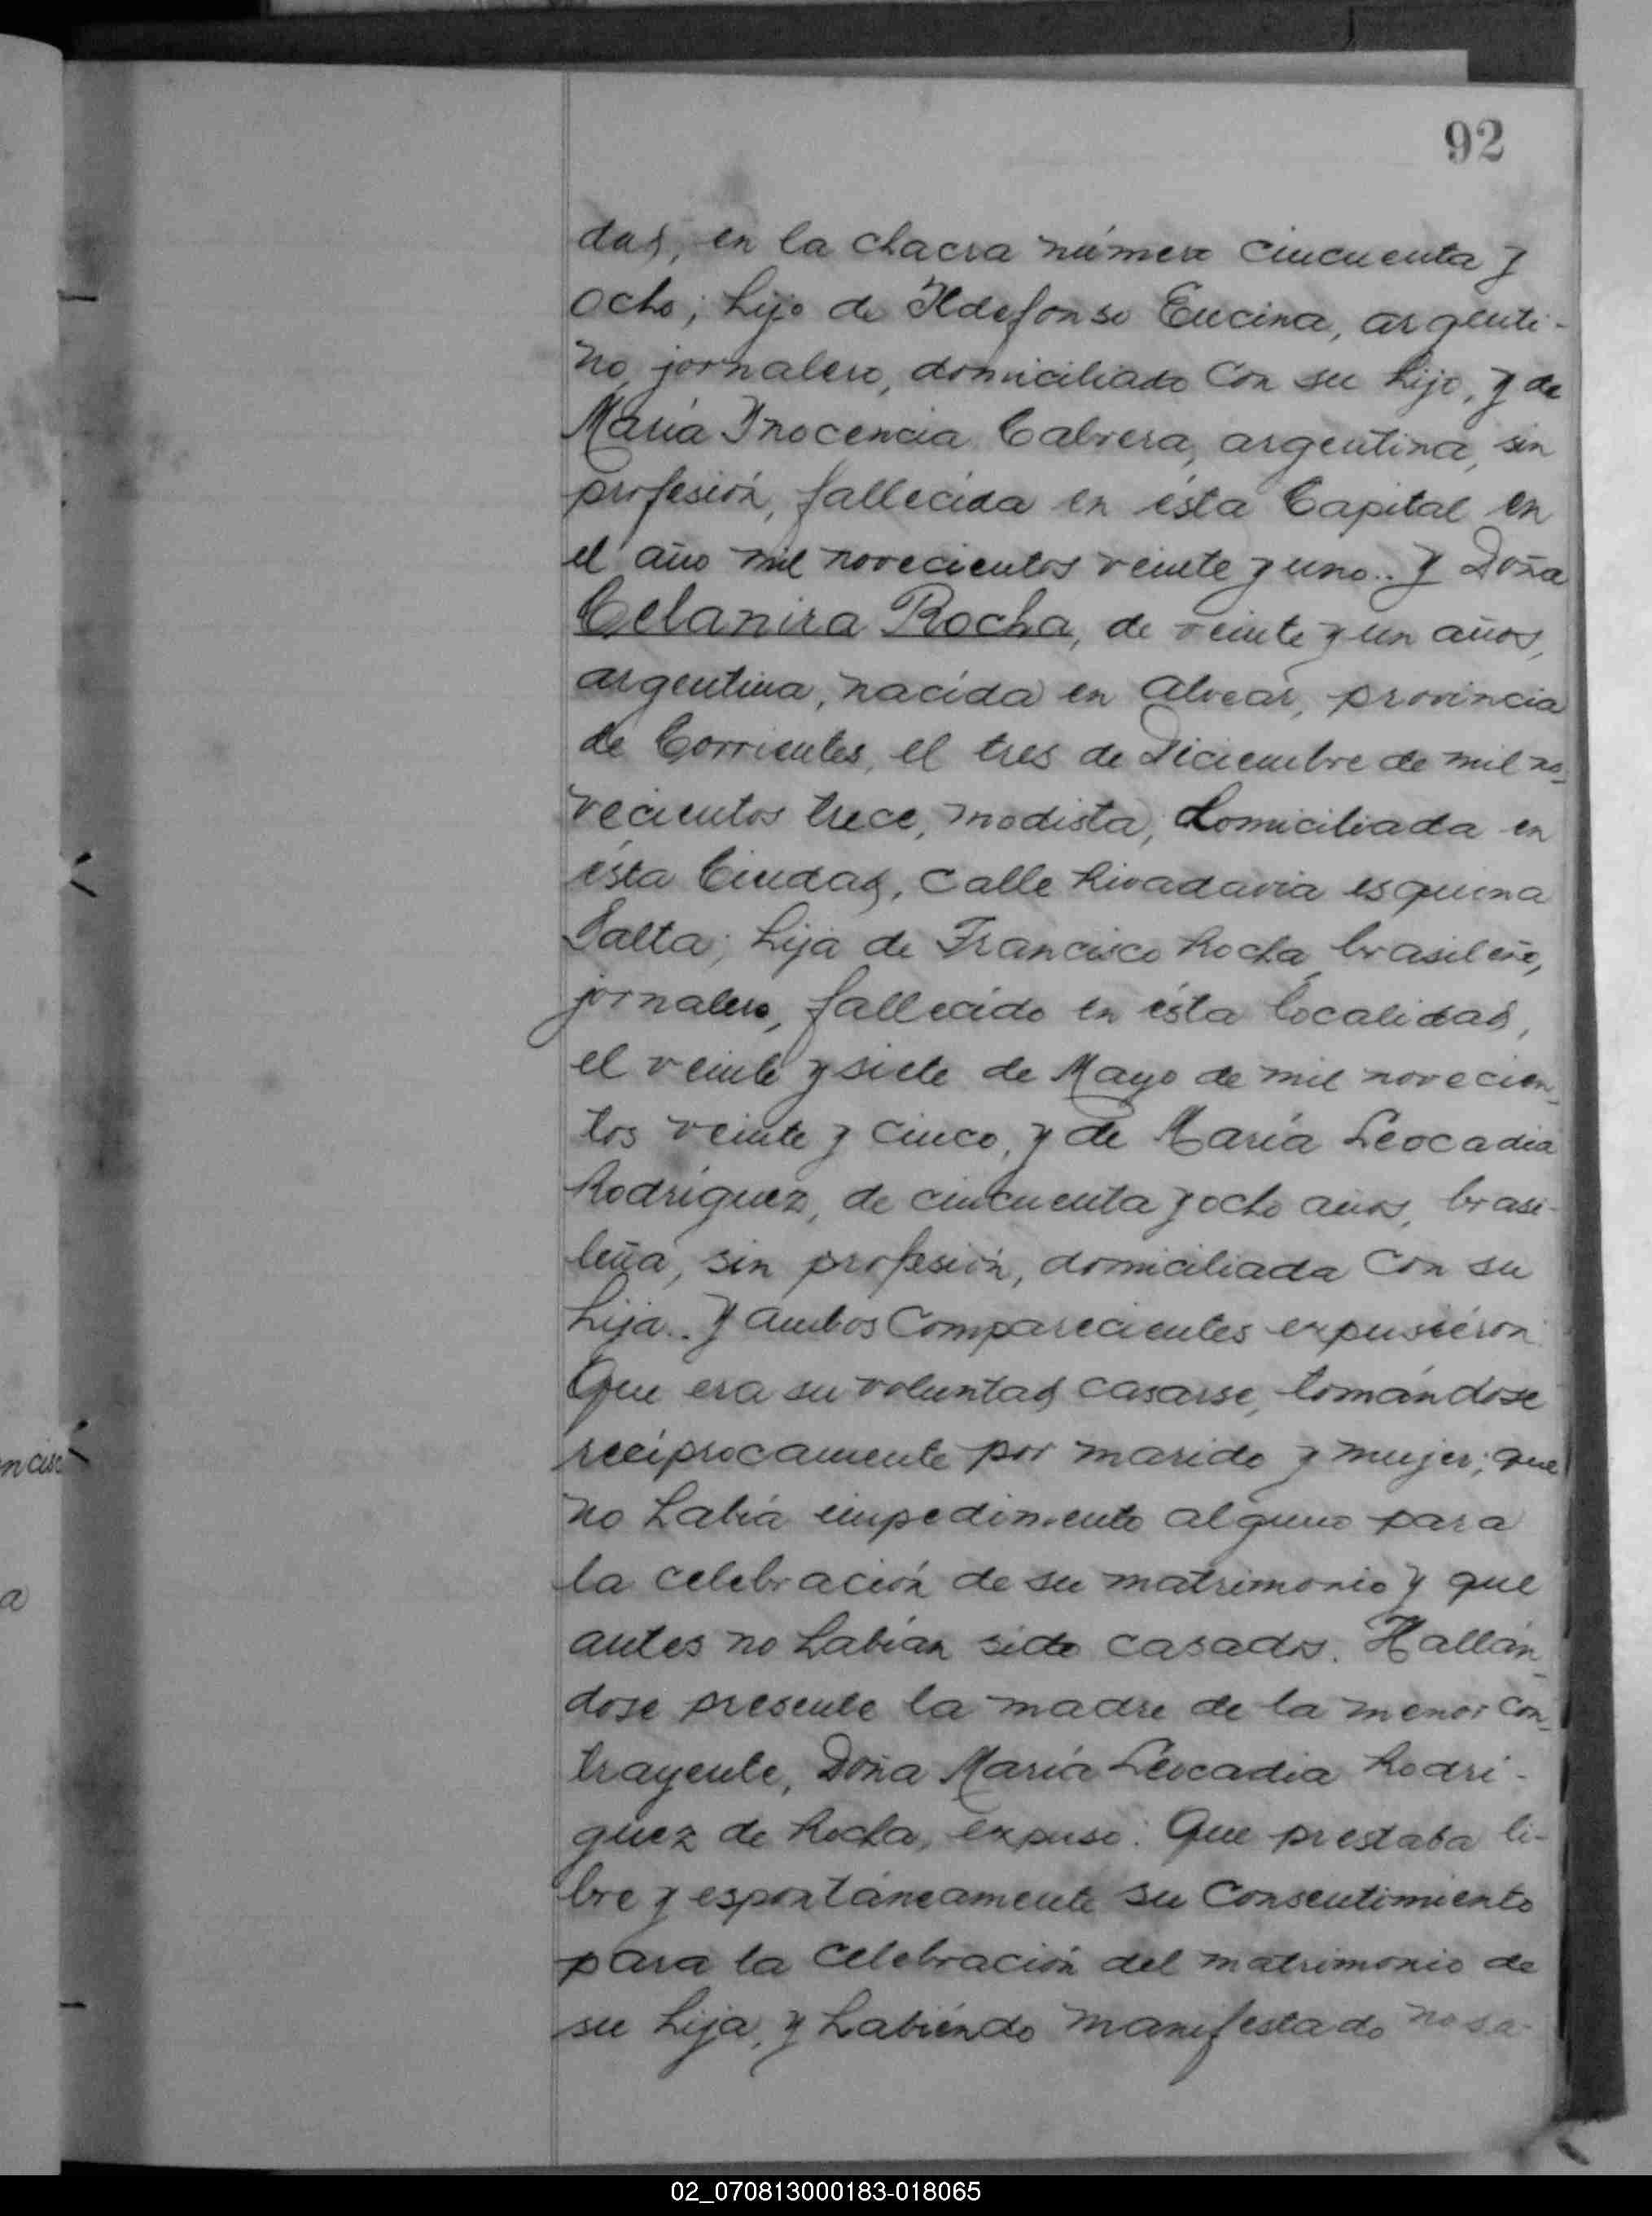 92
dad, en la chacra número cincuenta y
ocho; hijo de Ildefonso Encina, argenti-
no, jornalero, domiciliado con su hijo, y de
María Inocencia Cabrera, argentina, sin
profesión, fallecida en ésta Capital en
el año mil novecientos veinte y uno.. y Doña
Celanira Rocha, de veinte y un años,
argentina, nacida en Alvear, provincia
de Corrientes, el tres de Diciembre de mil no-
vecientos trece, modista, domiciliada en
ésta Ciudad, calle Rivadavia esquina
Salta; hija de Francisco Rocha, brasileño,
jornalero, fallecido en ésta localidad,
el veinte y siete de Mayo de mil novecien-
tos veinte y cinco, y de María Leocadia
Rodríguez, de cincuenta y ocho años, brasi-
leña, sin profesión, domiciliada con su
hija.. Y ambos comparecientes expusiéron:
Que era su voluntad casarse, tomándose
recíprocamente por marido y mujer; que
no había impedimento alguno para
la celebración de su matrimonio y que
antes no habían sido casados. Hallán-
dose presente la madre de la menor con-
trayente, Doña María Leocadia Rodrí-
guez de Rocha, expuso: Que prestaba li-
bre y espontáneamente su consentimiento
para la celebración del matrimonio de
su hija, y habiéndo manifestado no sa-
a
02_070813000183-018065